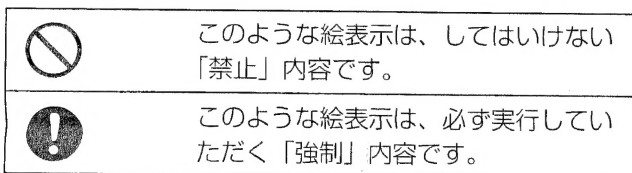 このような絵表示は、してはいけない
「禁止」内容です。
このような絵表示は、必ず実行してい
ただく「強制」内容です。